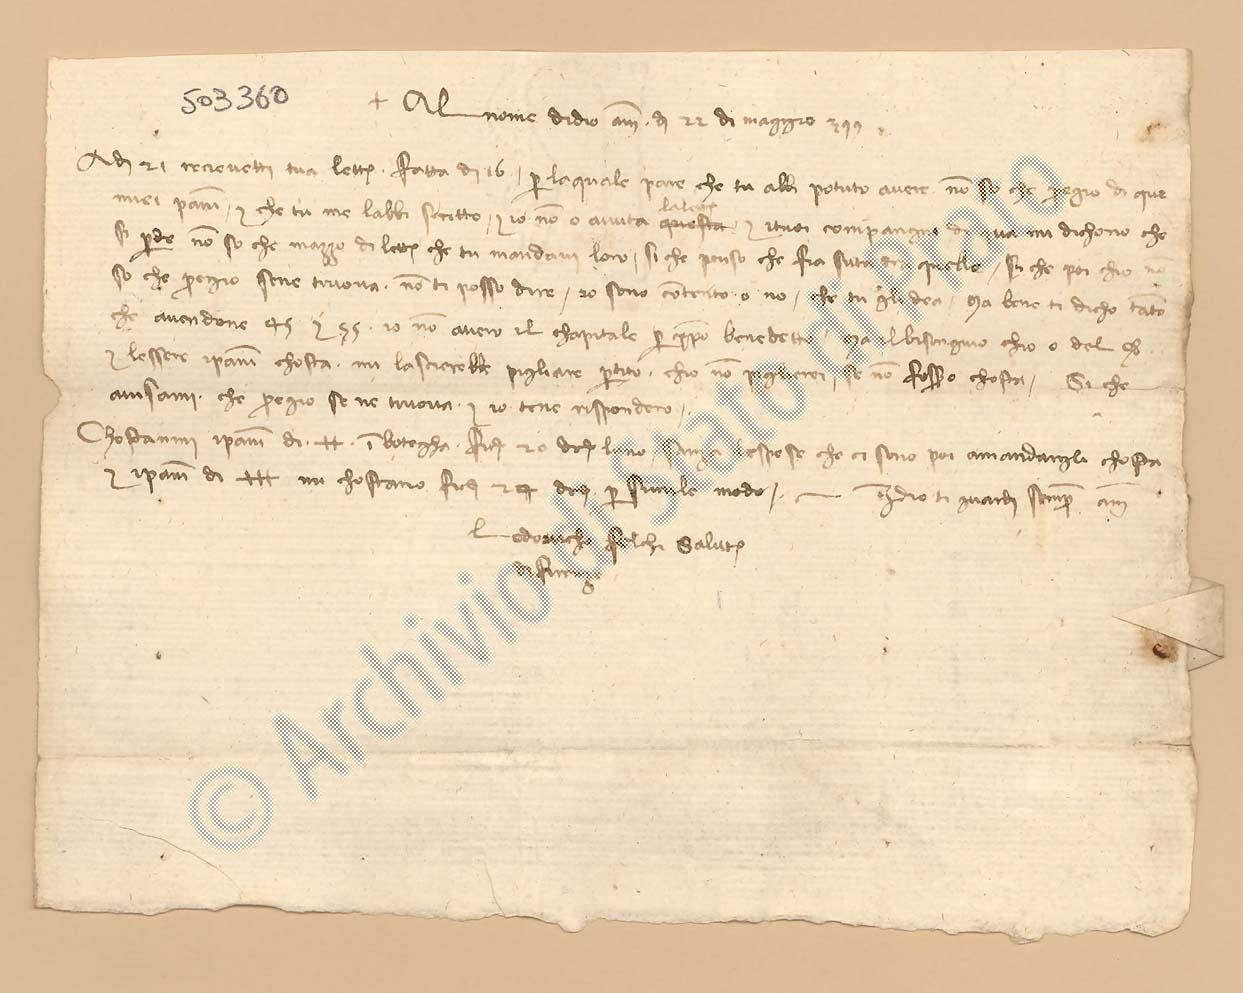 503360
+ Al nome di dio am̄. dì 22 di maggio 399
Adì 21 ricievetti tua lett. fatta dì 16 / p laquale pare che tu abbi potuto avere non so che pregio di que
miei panni / e che tu me labbi scritto / e io non o avuta questa la lett. e i tuoi compangni di qua mi dichono che
si perde non so che mazzo di lett. che tu mandavi loro / sì che penso che fia suta tra quelle / sì che poi chio non
so che pregio sene truova. non ti posso dire / io sono contento o no / che tu gli dea / Ma bene ti dicho tanto
che avendone 45 in 55. io non avero il chapitale p benedetto / Ma il bisongnio chio o del
e lessere i panni chosta. mi lascierebbe pigliare partito. chio non piglierei / se non fosso chosta / Sì che
avisami. che pregio se ne truova. e io tene rispondero /.
Chostanmi i panni di ++. in botegha. fior. 20 luno / sanza lespese che ci sono poi amandargli chosta
e i panni di +++ mi chostano fior. 24 p simile modo /. Iddio ti guardi sempre am̄
Lodovicho salut.
di Firenze
© Archivio di Stato di Prato